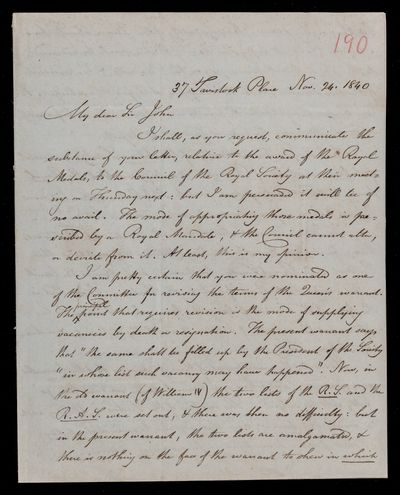 190
37 Tavistock Place Nov. 24. 1840
My dear Sir John
I shall, as you request, communicate the
substance of your letter, relative to the award of the Royal
Medals, to the Council of the Royal Society at their meet-
ing on Thursday next: but I am persuaded it will be of
no avail. The mode of appropriating those medals is pre-
scribed by a Royal Mandate, & the Council cannot alter,
or deviate from it. At least, this is my opinion.
I am pretty certain that you were nominated as one
of the Committee for revising the terms of the Queen's warrant.
The principal point that requires revision is the mode of supplying
vacancies by death or resignation. The present warrant says
that "the same shall be filled up by the President of the Society
"in whose list such vacancy may have happened". Now, in
the old warrant (of William IV) the two lists of the R.S. and the
R.A.S. were set out, & there was then no difficulty: but
in the present warrant, the two lists are amalgamated, &
there is nothing on the face of the warrant to shew in which